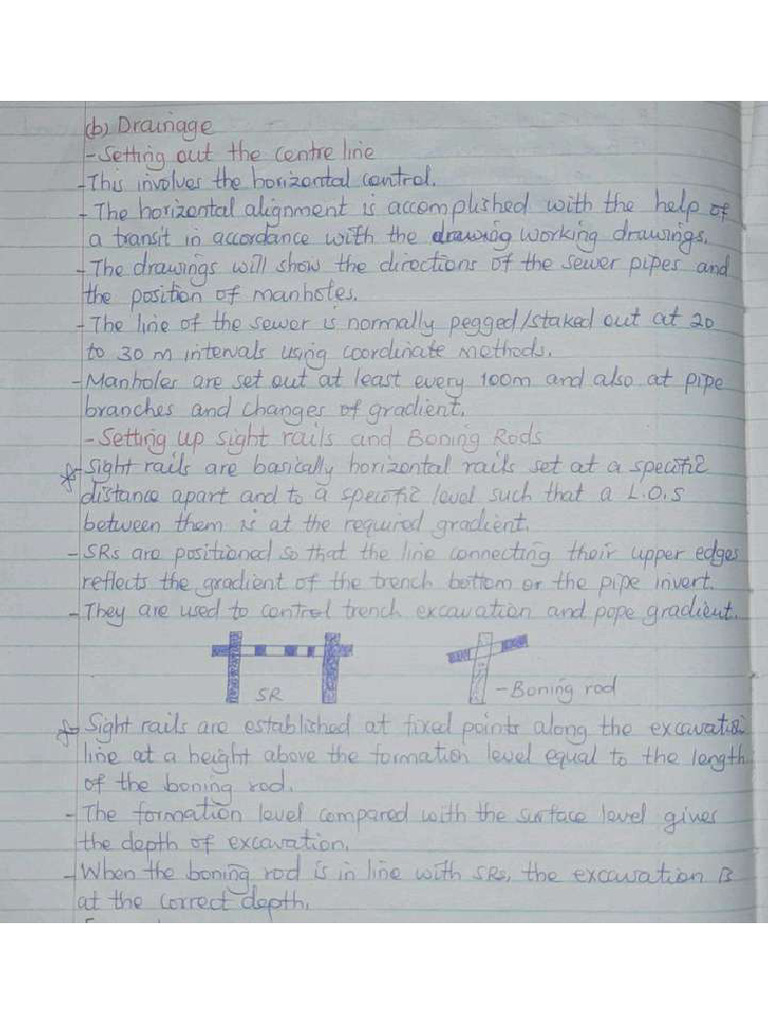 (b) Drainage
- Setting out the centre line
- This involves the horizontal control.
- The horizontal alignment is accomplished with the help of
a transit in accordance with the drawing working drawings.
- The drawings will show the directions of the sewer pipes and
the position of manholes.
- The line of the sewer is normally pegged/staked out at 20
to 30 m intervals using coordinate methods.
- Manholes are set out at least every 100m and also at pipe
branches and changes of gradient.
- Setting up sight rails and Boning Rods
* Sight rails are basically horizontal rails set at a specific
distance apart and to a specific level such that a L.O.S
between them is at the required gradient.
- SRs are positioned so that the line connecting their upper edges
reflects the gradient of the trench bottom or the pipe invert.
- They are used to control trench excavation and pope gradient.
SR
- Boning rod
* Sight rails are established at fixed points along the excavatio
line at a height above the formation level equal to the length
of the boning rod.
- The formation level compared with the surface level gives
the depth of excavation.
- When the boning rod is in line with SRs, the excavation is
at the correct depth.